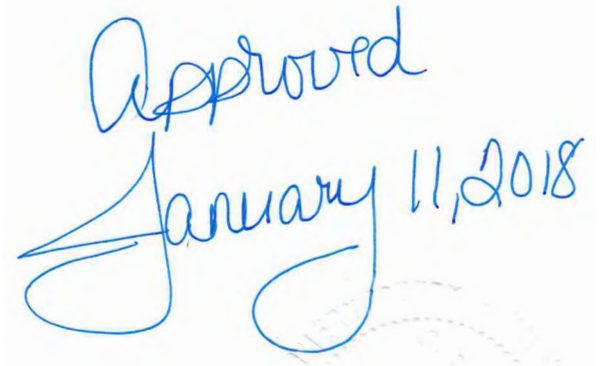 Approved
January 11, 2018